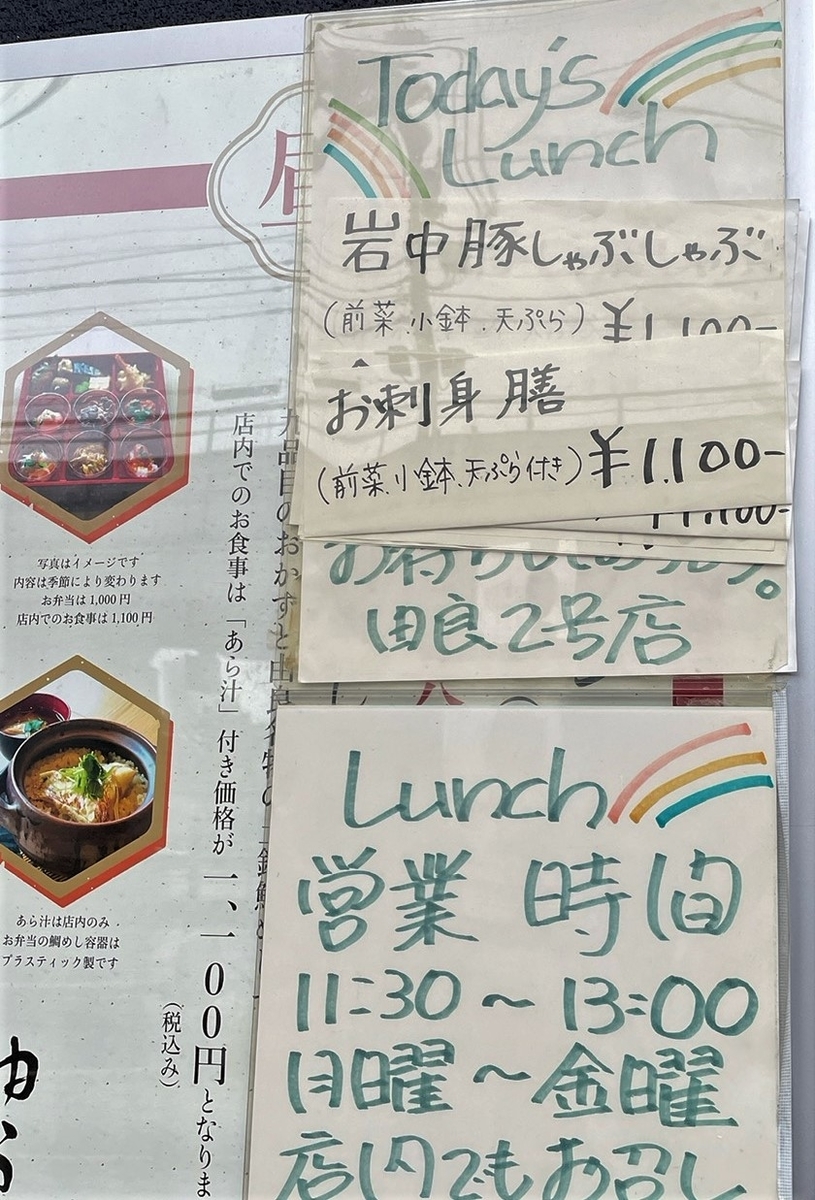 Today's
Lunch
岩中豚しゃぶしゃぶ
(前菜.小鉢.天ぷら) ¥1,100-
お刺身膳
(前菜.小鉢.天ぷら付き) ¥1.100-
¥1.100-
由良2号店
Lunch
営業時間
11:30 ~ 13:00
月曜 ~ 金曜
店内でもお召し
昼
店内でのお食事は「あら汁」付き価格が一、一〇〇円となりま
(税込み)
写真はイメージです
内容は季節により変わります
お弁当は1,000円
店内でのお食事は1,100円
あら汁は店内のみ
お弁当の鯛めし容器は
プラスティック製です